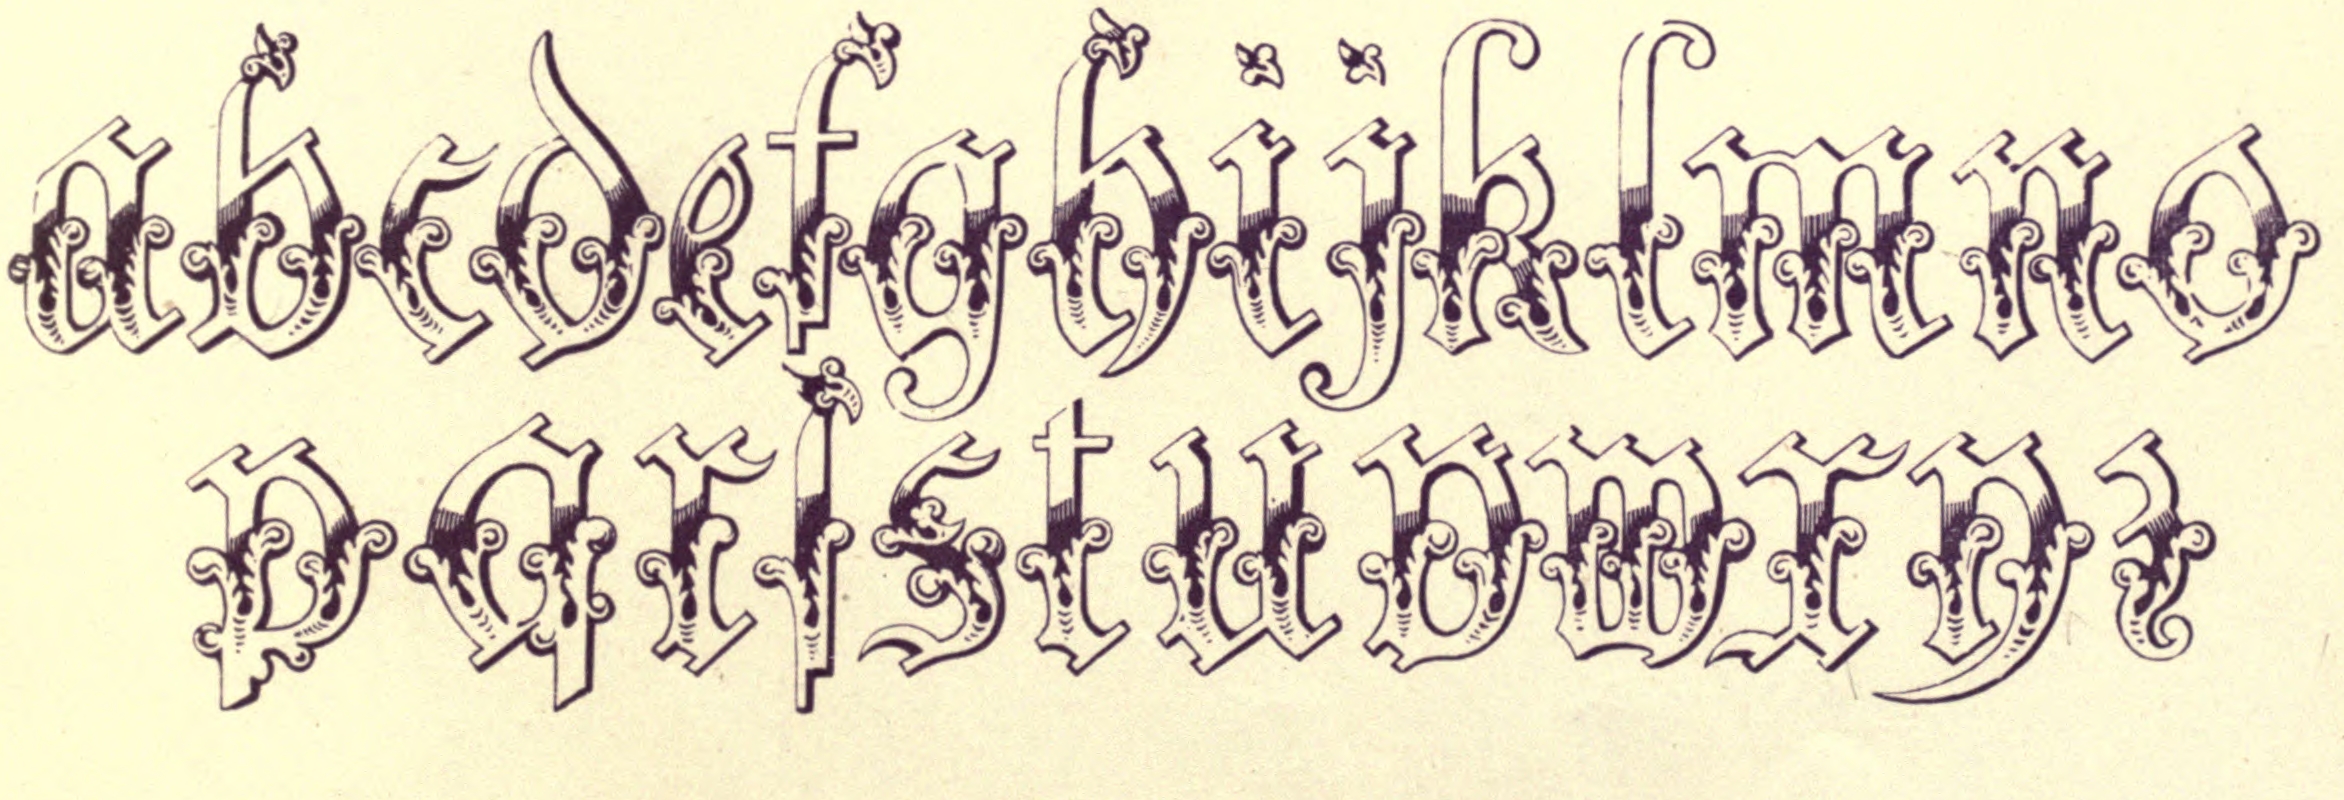 abcdefghijklmno
pqrſstuvwxyz